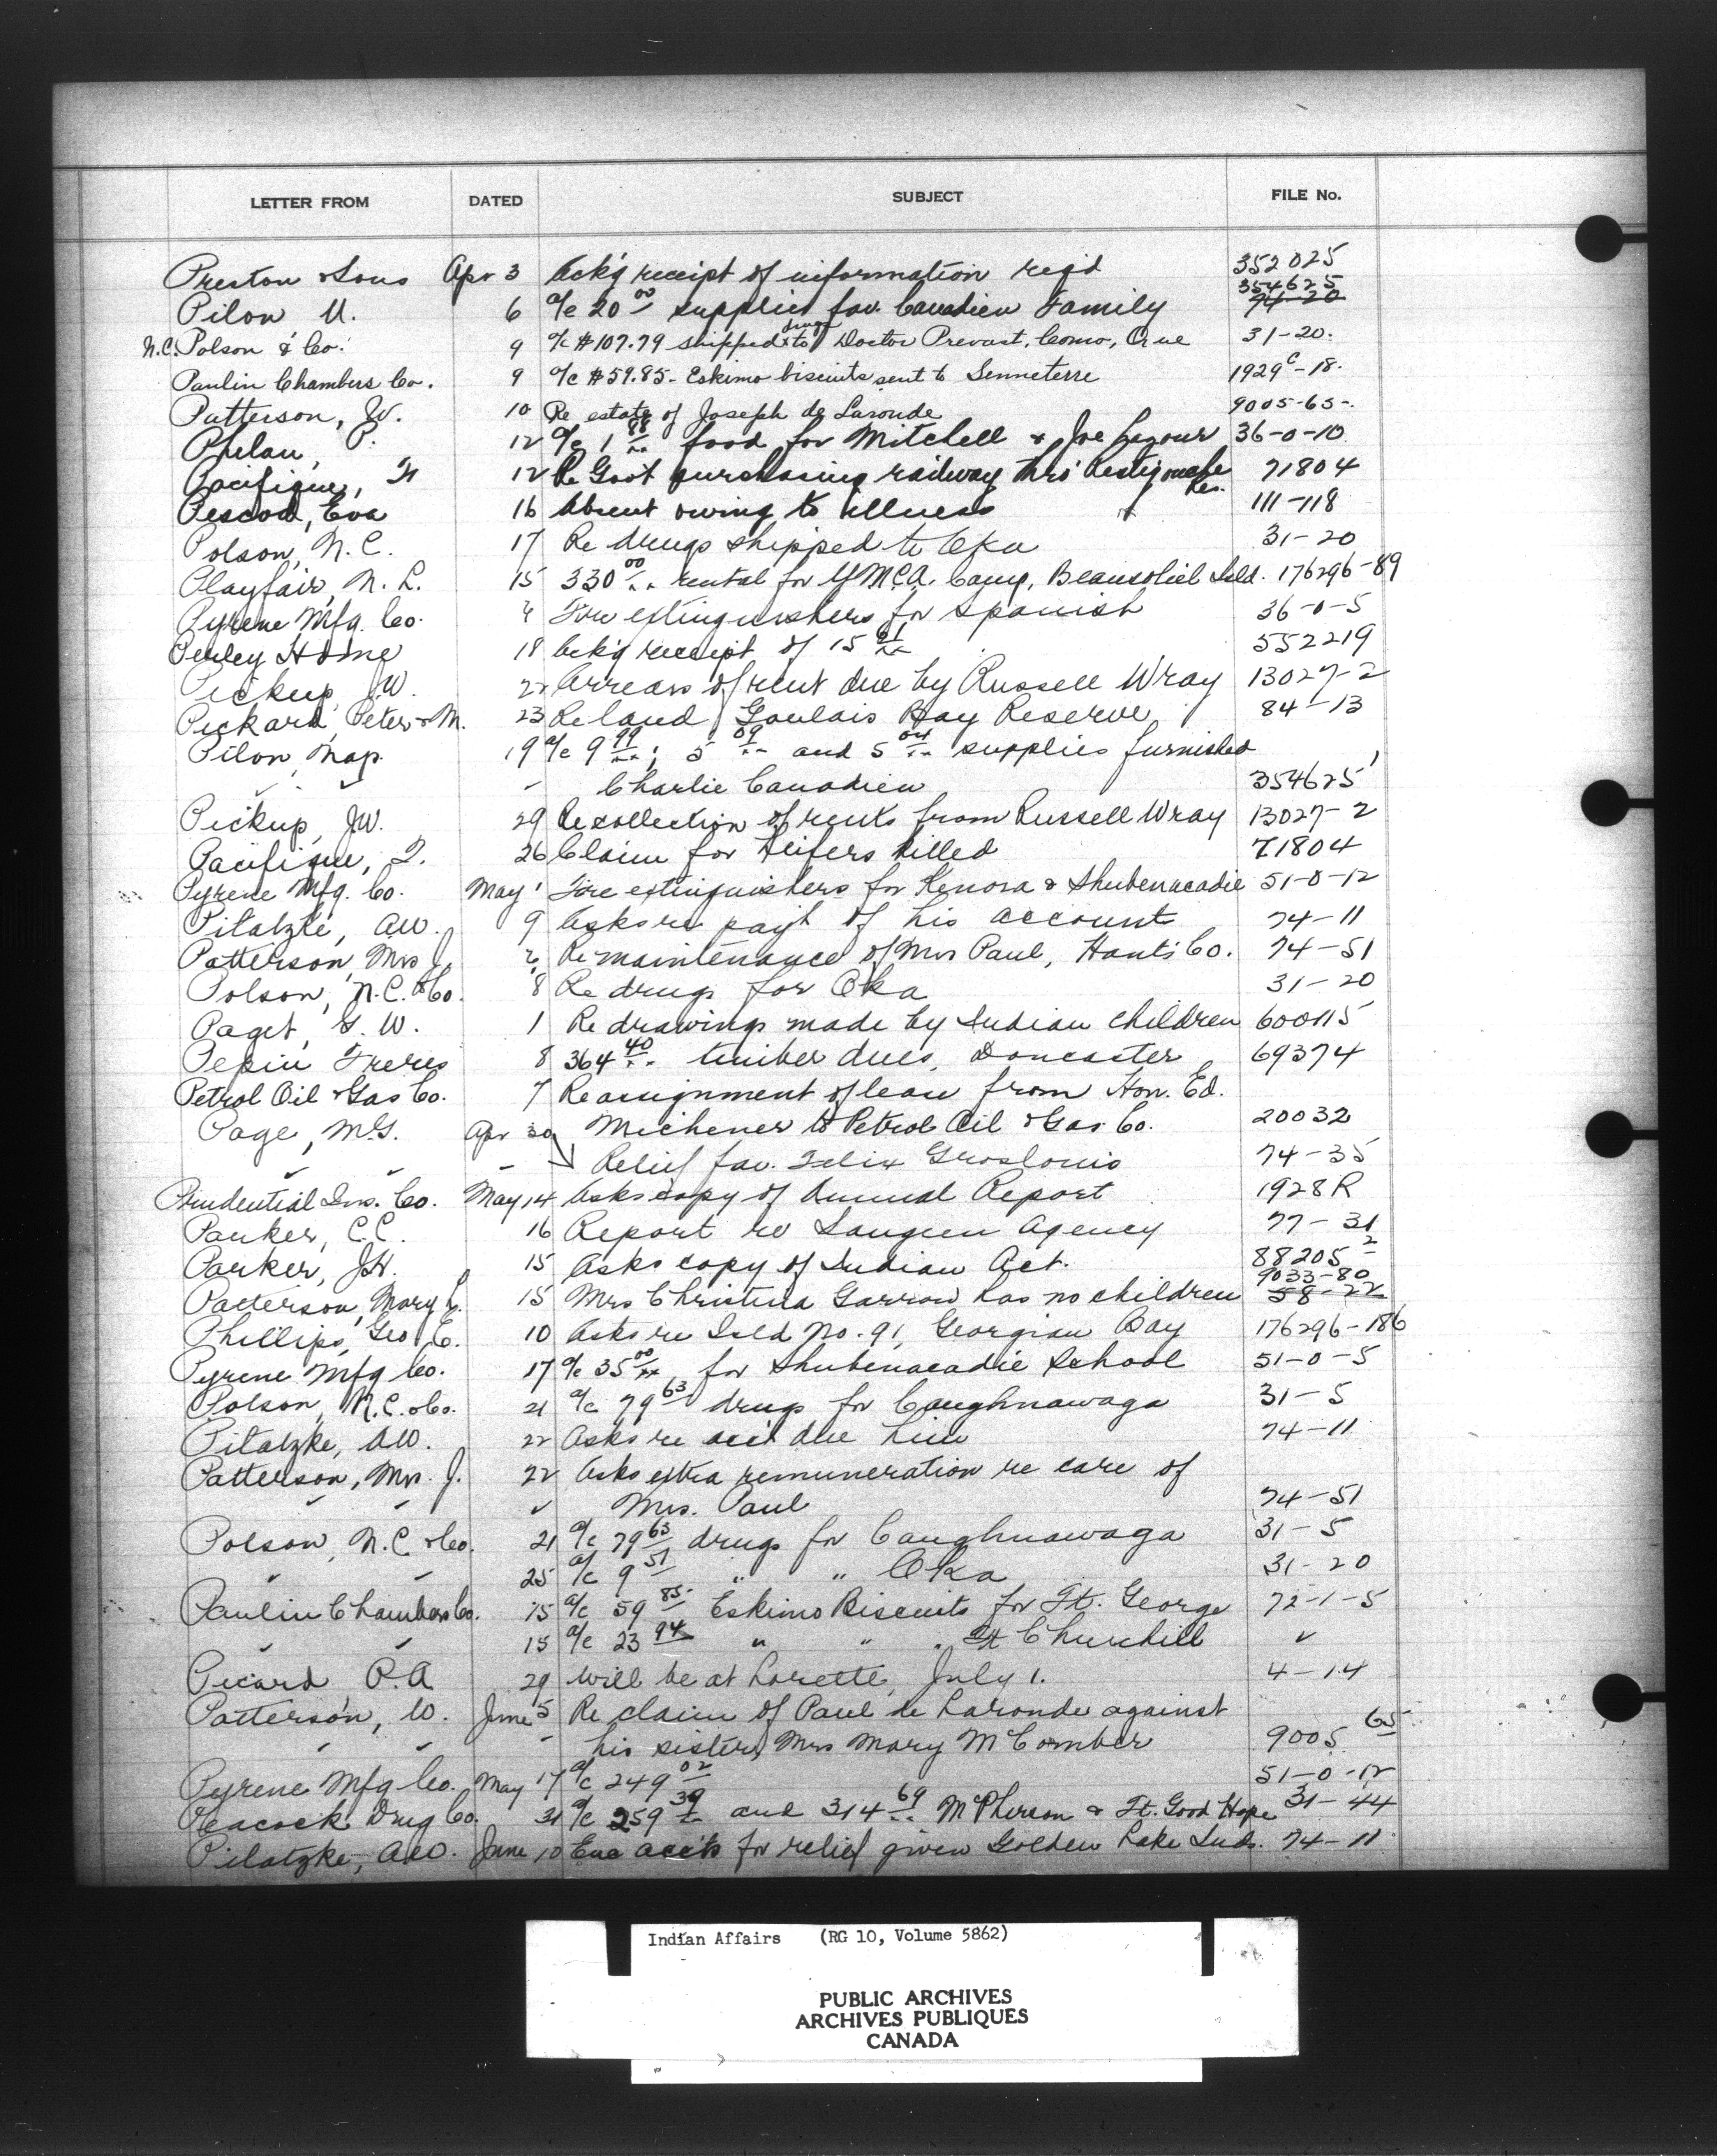 LETTER FROM DATED SUBJECT FILE No.
Preston & Sons Apr 3 Ack'g receipt of information req'd 352025
Pilon U. 6 a/c 20 00 supplies fav. Canadien Family 354625 74-20
N.C. Polson & Co. 9 a/c $107.79 drugs shipped to Doctor Prevost, Como, Que 31-20.
Paulin Chambers Co. 9 a/c $59.85 - Eskimo biscuits sent to Senneterre 1929 C-18.
Patterson, W. 10 Re estate of Joseph de Laronde 9005-65-.
Phelan, P. 12 a/c 1 88 food for Mitchell & Joe 36-0-10
Pacifique, F 12 Re Govt purchasing railway thro' Restigouche Res. 71804
Pescod, Eva 16 Absent owing to illness 111-118
Polson, N.C. 17 Re drugs shipped to Oka 31-20
Playfair, N. L. 15 330 00 rental for YMCA. Camp, Beausoliel Isld. 176296-89
Pyrene Mfg. Co. 4 Fire extinguishers for Spanish 36-0-5
Perley Home 18 Ack'g receipt of 15 91 552219
Pickup, JW. 22 Arrears of rent due by Russell Wray 13027-2
Pickard, Peter & M. 23 Re land Goulais Bay Reserve 84-13
Pilon, Nap. 19 a/c 9 99; 5 09 and 5 04 supplies furnished
Charlie Canadien 354625
Pickup, JW. 29 Re collection of rents from Russell Wray 13027-2
Pacifique, F. 26 Claim for Heifers killed 71804
Pyrene Mfg. Co. May 1 Fire extinguishers for Kenora & Shubenacadie 51-0-12
Pilatzke, AW. 9 Asks re pay't of his account 74-11
Patterson, Mrs J. 6 Re maintenance of Mrs Paul, Hants Co. 74-51
Polson, N.C. & Co. 8 Re drugs for Oka 31-20
Paget, G. W. 1 Re drawings made by Indian children 600115
Pepin Freres 8 364 40 timber dues, Doncaster 69374
Petrol Oil & Gas Co. 7 Re assignment of lease from Hon. Ed.
Michener to Petrol Oil & Gas Co. 20032
Page, M.G. Apr 30 Relief fav. Felix Groslouis 74-35
Prudential Ins. Co. May 14 Asks copy of Annual Report 1928R
Parker, C.C. 16 Report re Saugeen Agency 77-31
Parker, J.H. 15 Asks copy of Indian Act. 88205 2
Patterson, Mary L. 15 Mrs Christina Garrow has no children 9033-80 58-22
Phillips, Geo. E. 10 Asks re Isld No. 91, Georgian Bay 176296-186
Pyrene Mfg Co. 17 a/c 35 00 for Shubenacadie School 51-0-5
Polson, N.C. & Co. 21 a/c 79 63 drugs for Caughnawaga 31-5
Pilatzke, AW. 22 Asks re acc't due him 74-11
Patterson, Mrs. J. 22 Asks extra remuneration re care of
Mrs. Paul 74-51
Polson, N.C. & Co. 21 a/c 79 63 drugs for Caughnawaga 31-5
25 a/c 9 51 " " Oka 31-20
Paulin Chambers Co. 15 a/c 59 85 Eskimo Biscuits for Ft. George 72-1-5
15 a/c 23 94 " " " Ft Churchill ✓
Picard, P.A 29 Will be at Lorette, July 1. 4-14
Patterson, W. June 5 Re claim of Paul de Laronde against
his sister, Mrs Mary McComber 9005 65
Pyrene Mfg Co. May 17 a/c 249 02 51-0-12
Peacock Drug Co. 31 a/c 259 39 and 314 69 McPherson & Ft. Good Hope 31-44
Pilatzke, AW. June 10 Enc acc'ts for relief given Golden Lake Inds. 74-11
Indian Affairs (RG 10, Volume 5862)
PUBLIC ARCHIVES
ARCHIVES PUBLIQUES
CANADA